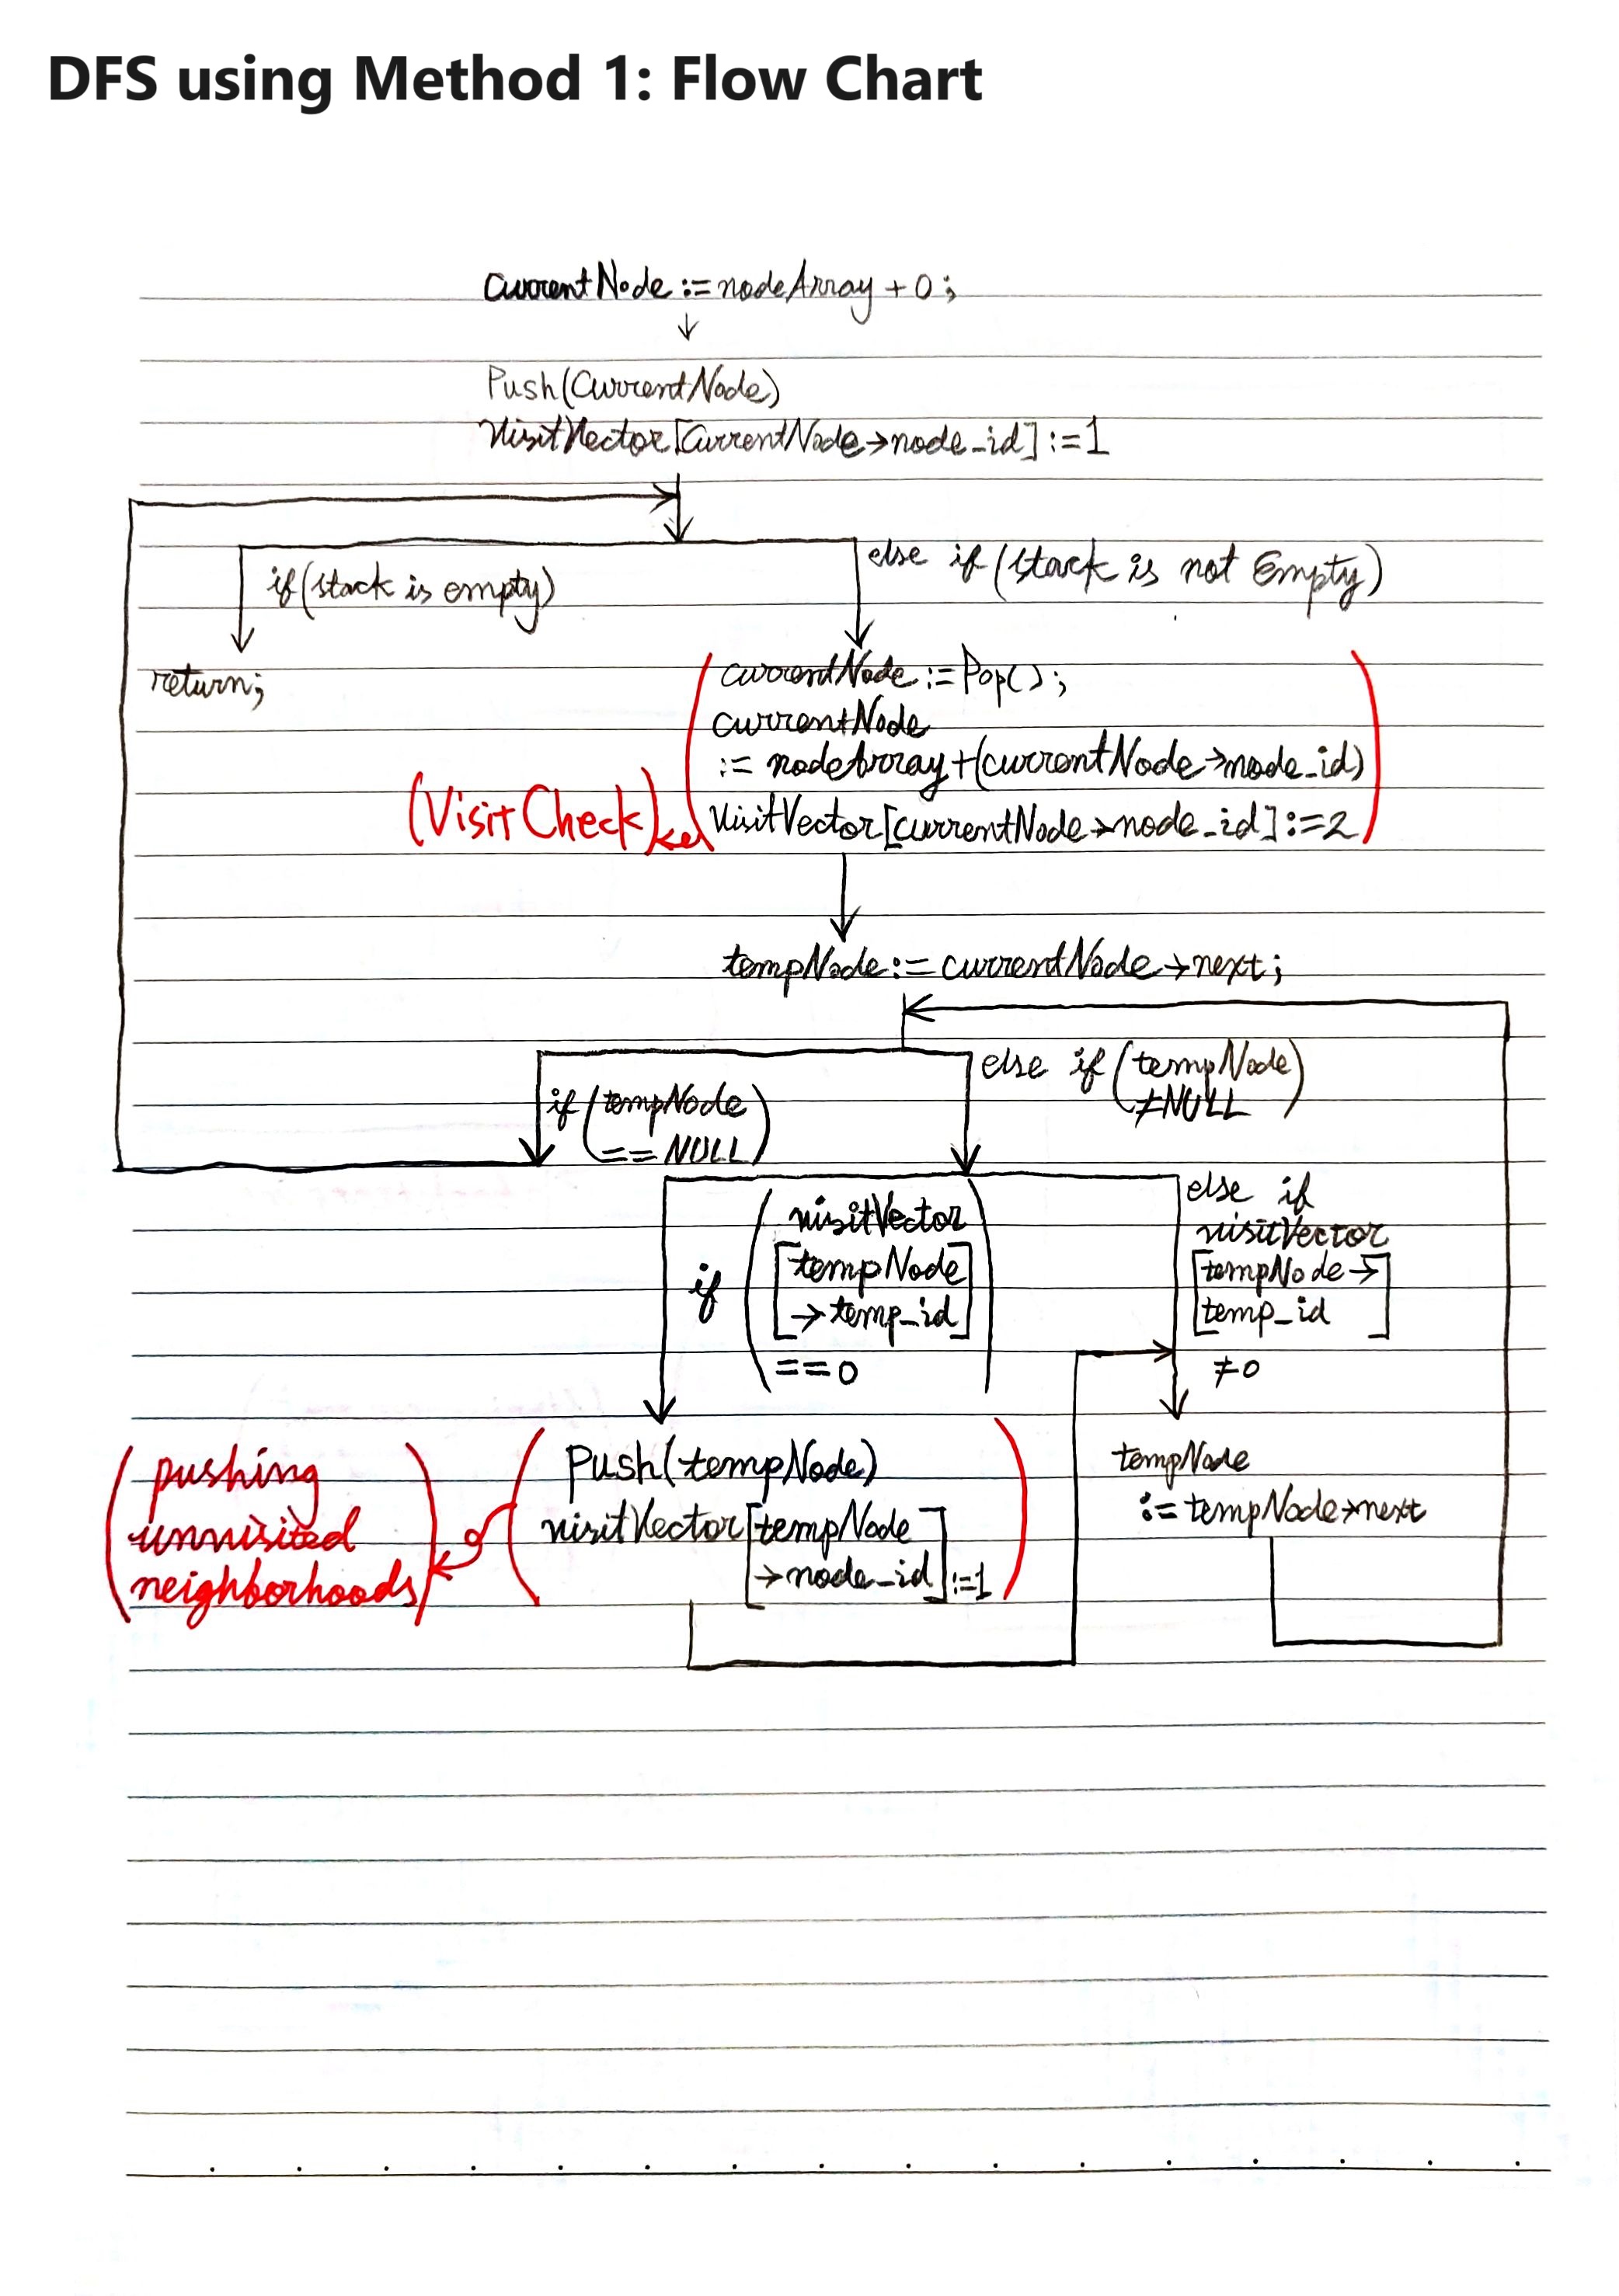 DFS using Method 1: Flow Chart
currentNode := nodeArray + 0;
Push(CurrentNode)
VisitVector[CurrentNode→node_id] := 1
if (stack is empty)
else if (stack is not Empty)
return;
currentNode := Pop();
currentNode
:= nodeArray+(currentNode→node_id)
(Visit Check)
VisitVector[currentNode→node_id] := 2
tempNode := currentNode→next;
if (tempNode
== NULL)
else if (tempNode
≠NULL)
if (visitVector
[tempNode
→temp_id]
==0)
else if
visitVector
[tempNode→
temp_id]
≠0
(pushing
unvisited
neighborhoods)
(Push(tempNode)
visitVector[tempNode
→node_id]:=1)
tempNode
:= tempNode→next